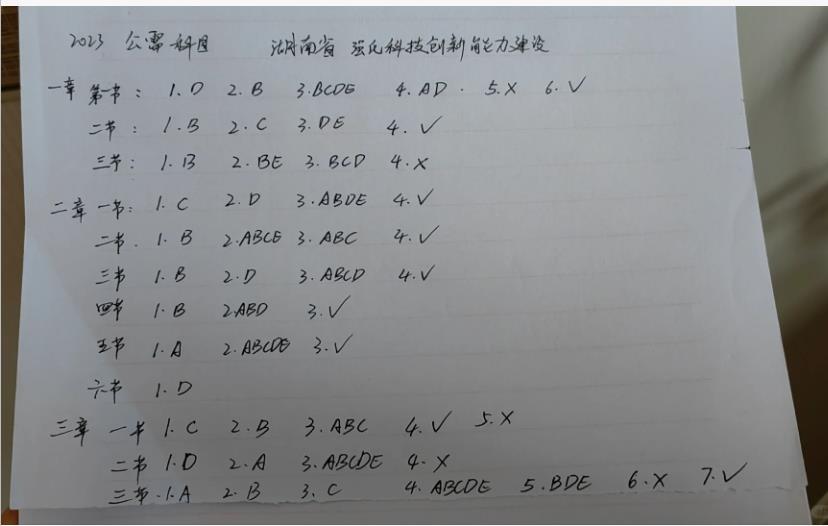 2023 公需科目 湖南省 强化科技创新能力建设
一章 第一节: 1.D 2.B 3.BCDE 4.AD. 5.X 6.√
二节: 1.B 2.C 3.DE 4.√
三节: 1.B 2.BE 3.BCD 4.X
二章 一节: 1.C 2.D 3.ABDE 4.√
二节. 1.B 2.ABCE 3.ABC 4.√
三节 1.B 2.D 3.ABCD 4.√
四节 1.B 2.ABD 3.√
五节 1.A 2.ABCDE 3.√
六节 1.D
三章 一节 1.C 2.B 3.ABC 4.√ 5.X
二节 1.D 2.A 3.ABCDE 4.X
三节.1.A 2.B 3.C 4.ABCDE 5.BDE 6.X 7.√